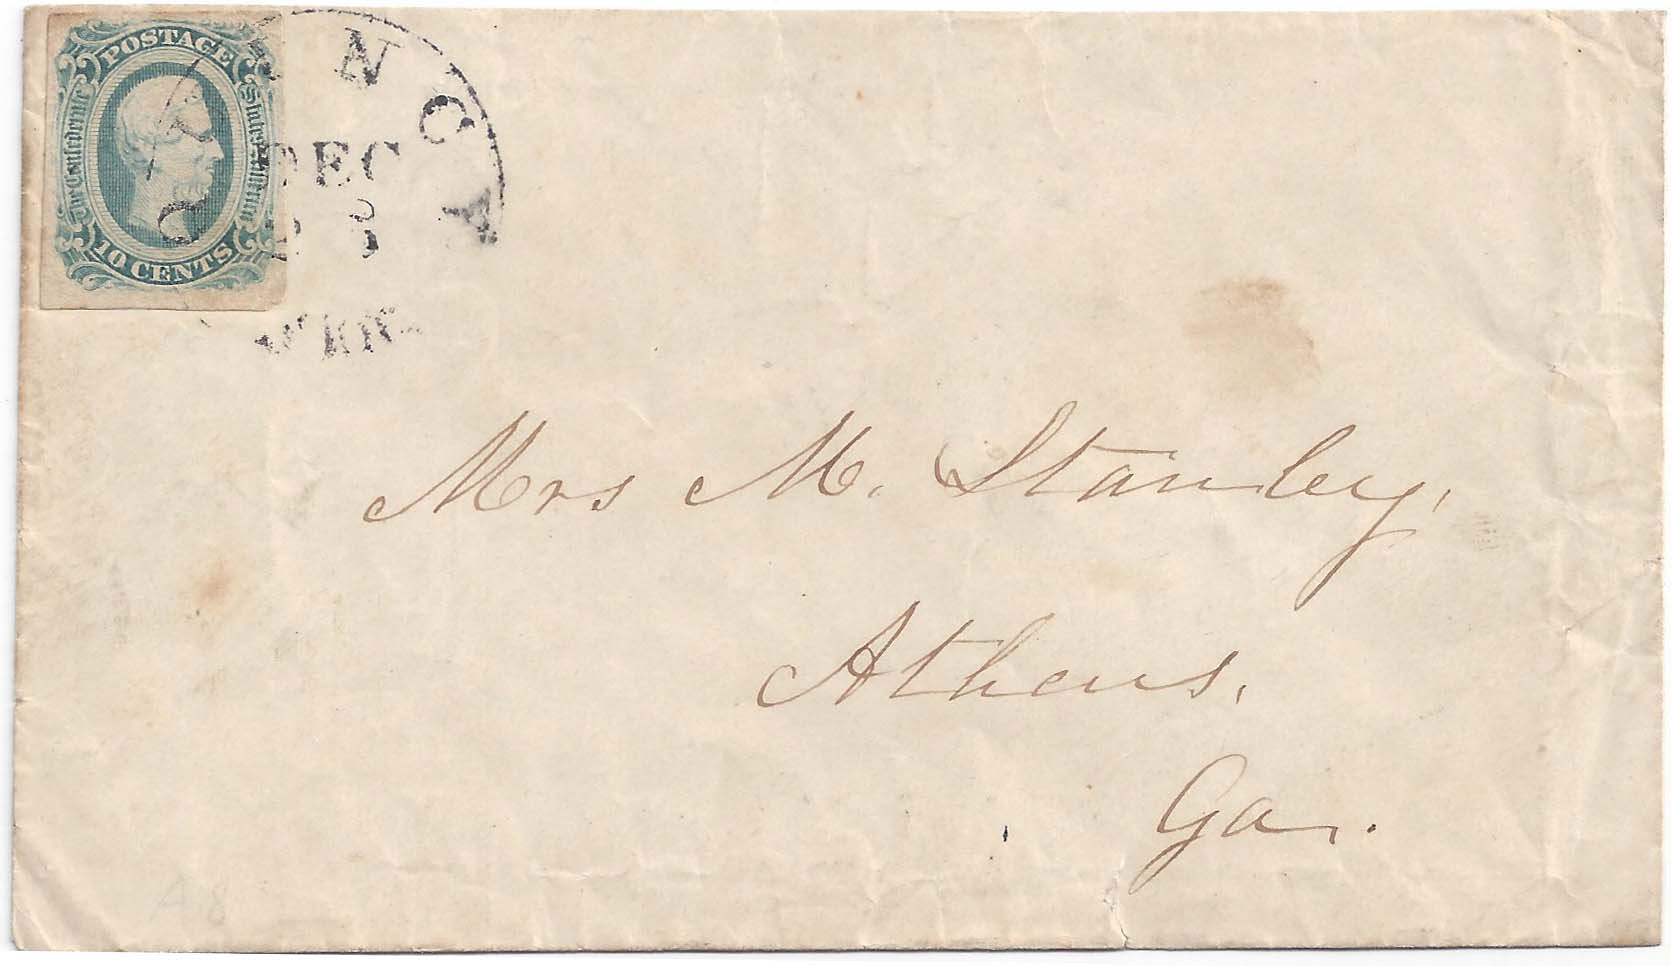 POSTAGE
The Confederate States of America
10 CENTS
QUINCY
DEC
Mrs M. Stanley,
Athens,
Ga.
A 8